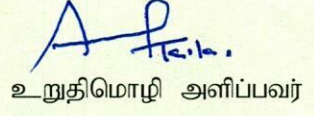 உறுதிமொழி அளிப்பவர்